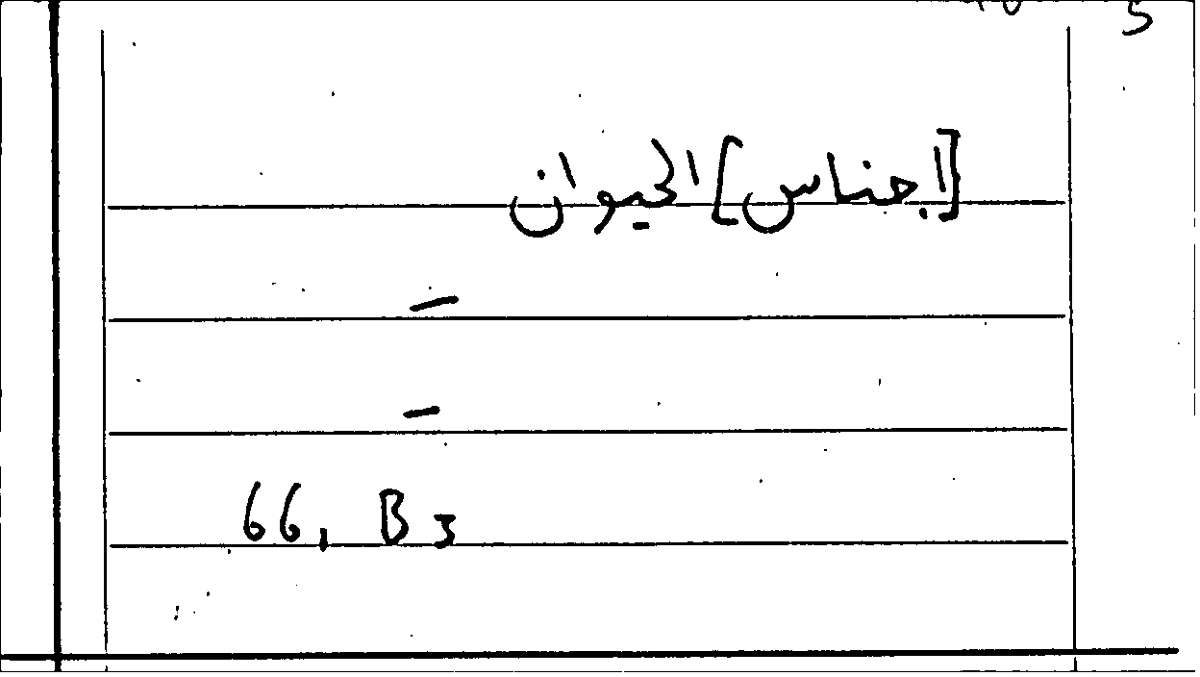 [اجناس] الحيوان
–
–
66, B3